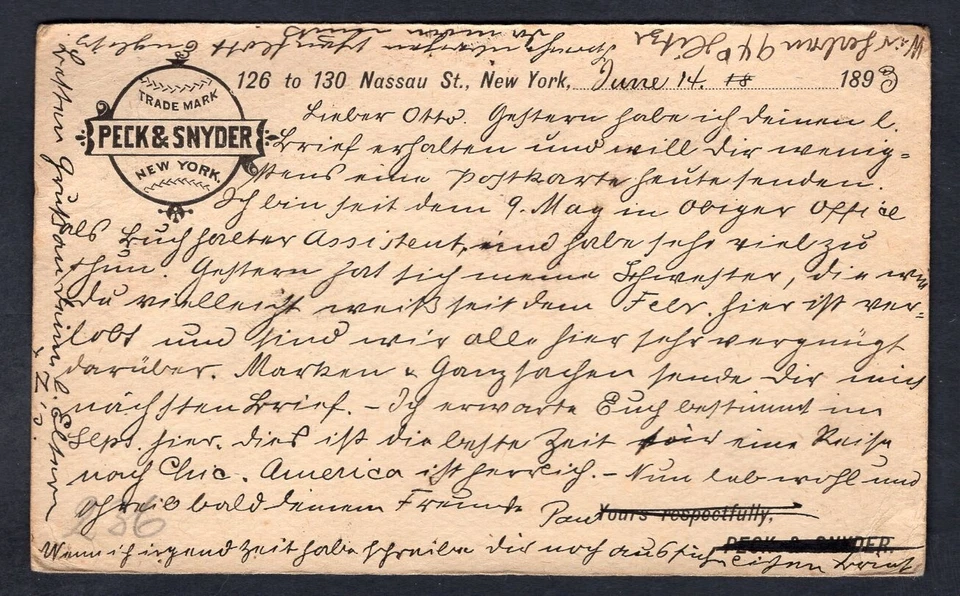 Wir haben 94° Hitze
TRADE MARK
PECK & SNYDER
NEW YORK
126 to 130 Nassau St., New York, June 14. 18 1893
Lieber Otto. Gestern habe ich deinen l.
Brief erhalten und will Dir wenig-
stens eine Postkarte heute senden.
Ich bin seit dem 9. May in obiger Office
als Buchhalter Assistent, und habe sehr viel zu
thun. Gestern hat sich meine Schwester, die wie
du vielleicht weißt seit dem Febr. hier ist ver-
lobt und sind wir alle hier sehr vergnügt
darüber. Marken & Ganzsachen sende Dir im
nächsten Brief. – Ich erwarte Euch bestimmt im
Sept. hier. Dies ist die beste Zeit für eine Reise
nach Chic. America ist herrlich. – Nun leb wohl und
schreib bald deinem Freunde Paul
Yours respectfully,
PECK & SNYDER.
Wenn ich irgend Zeit habe schreibe Dir noch ausführlichen Brief
Besten Gruß an Deine l. Eltern
236